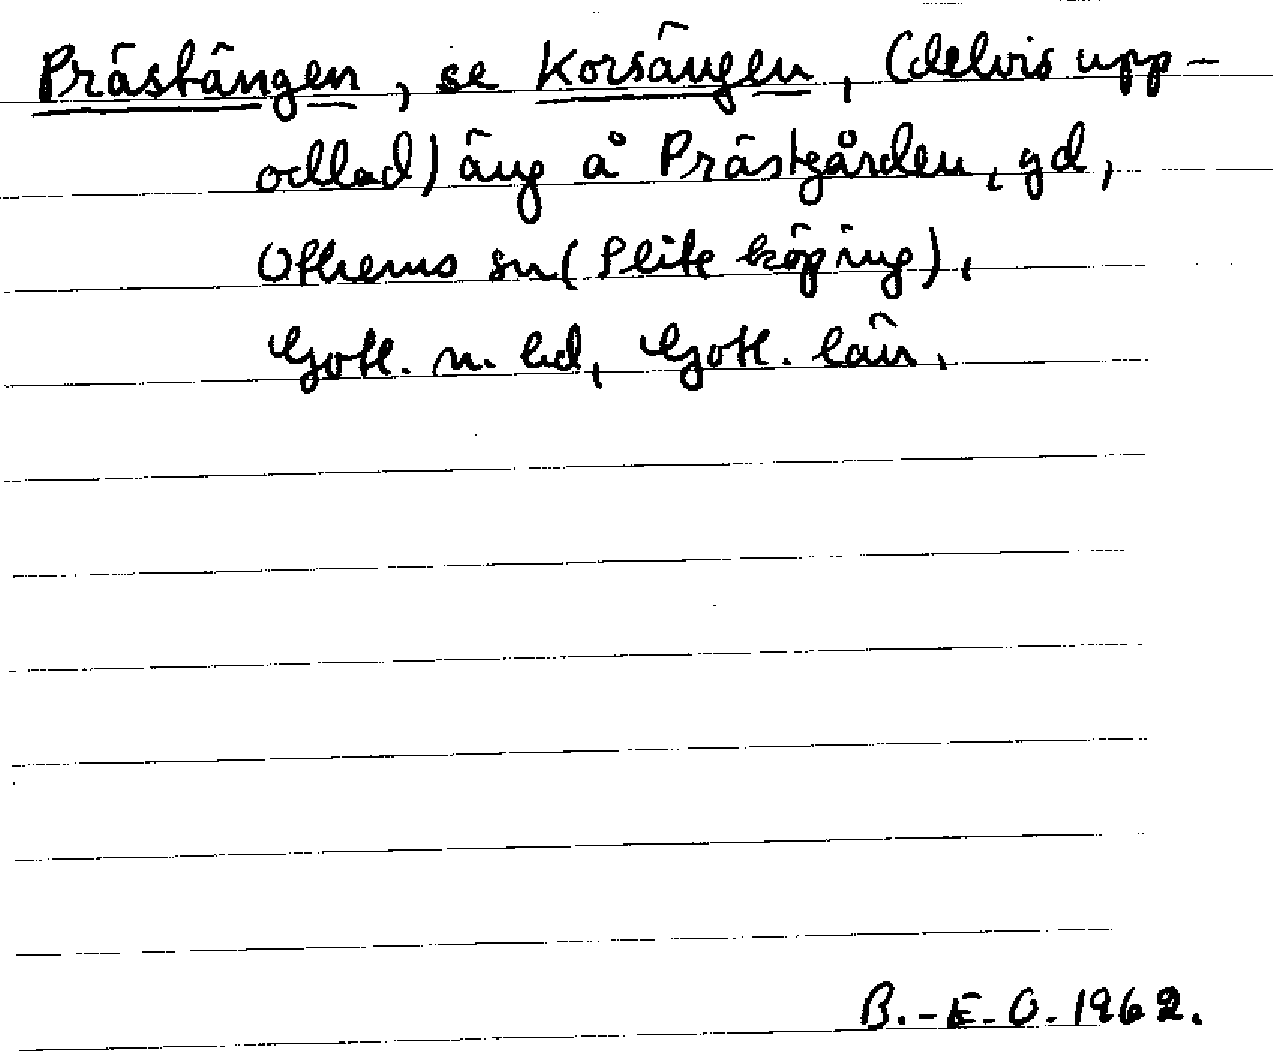 Prästängen, se Korsängen, (delvis upp-
odlad) äng å Prästgården, gd,
Othems sn (Slite köping),
Gotl. n. hd, Gotl. län.
B.-E. O. 1962.